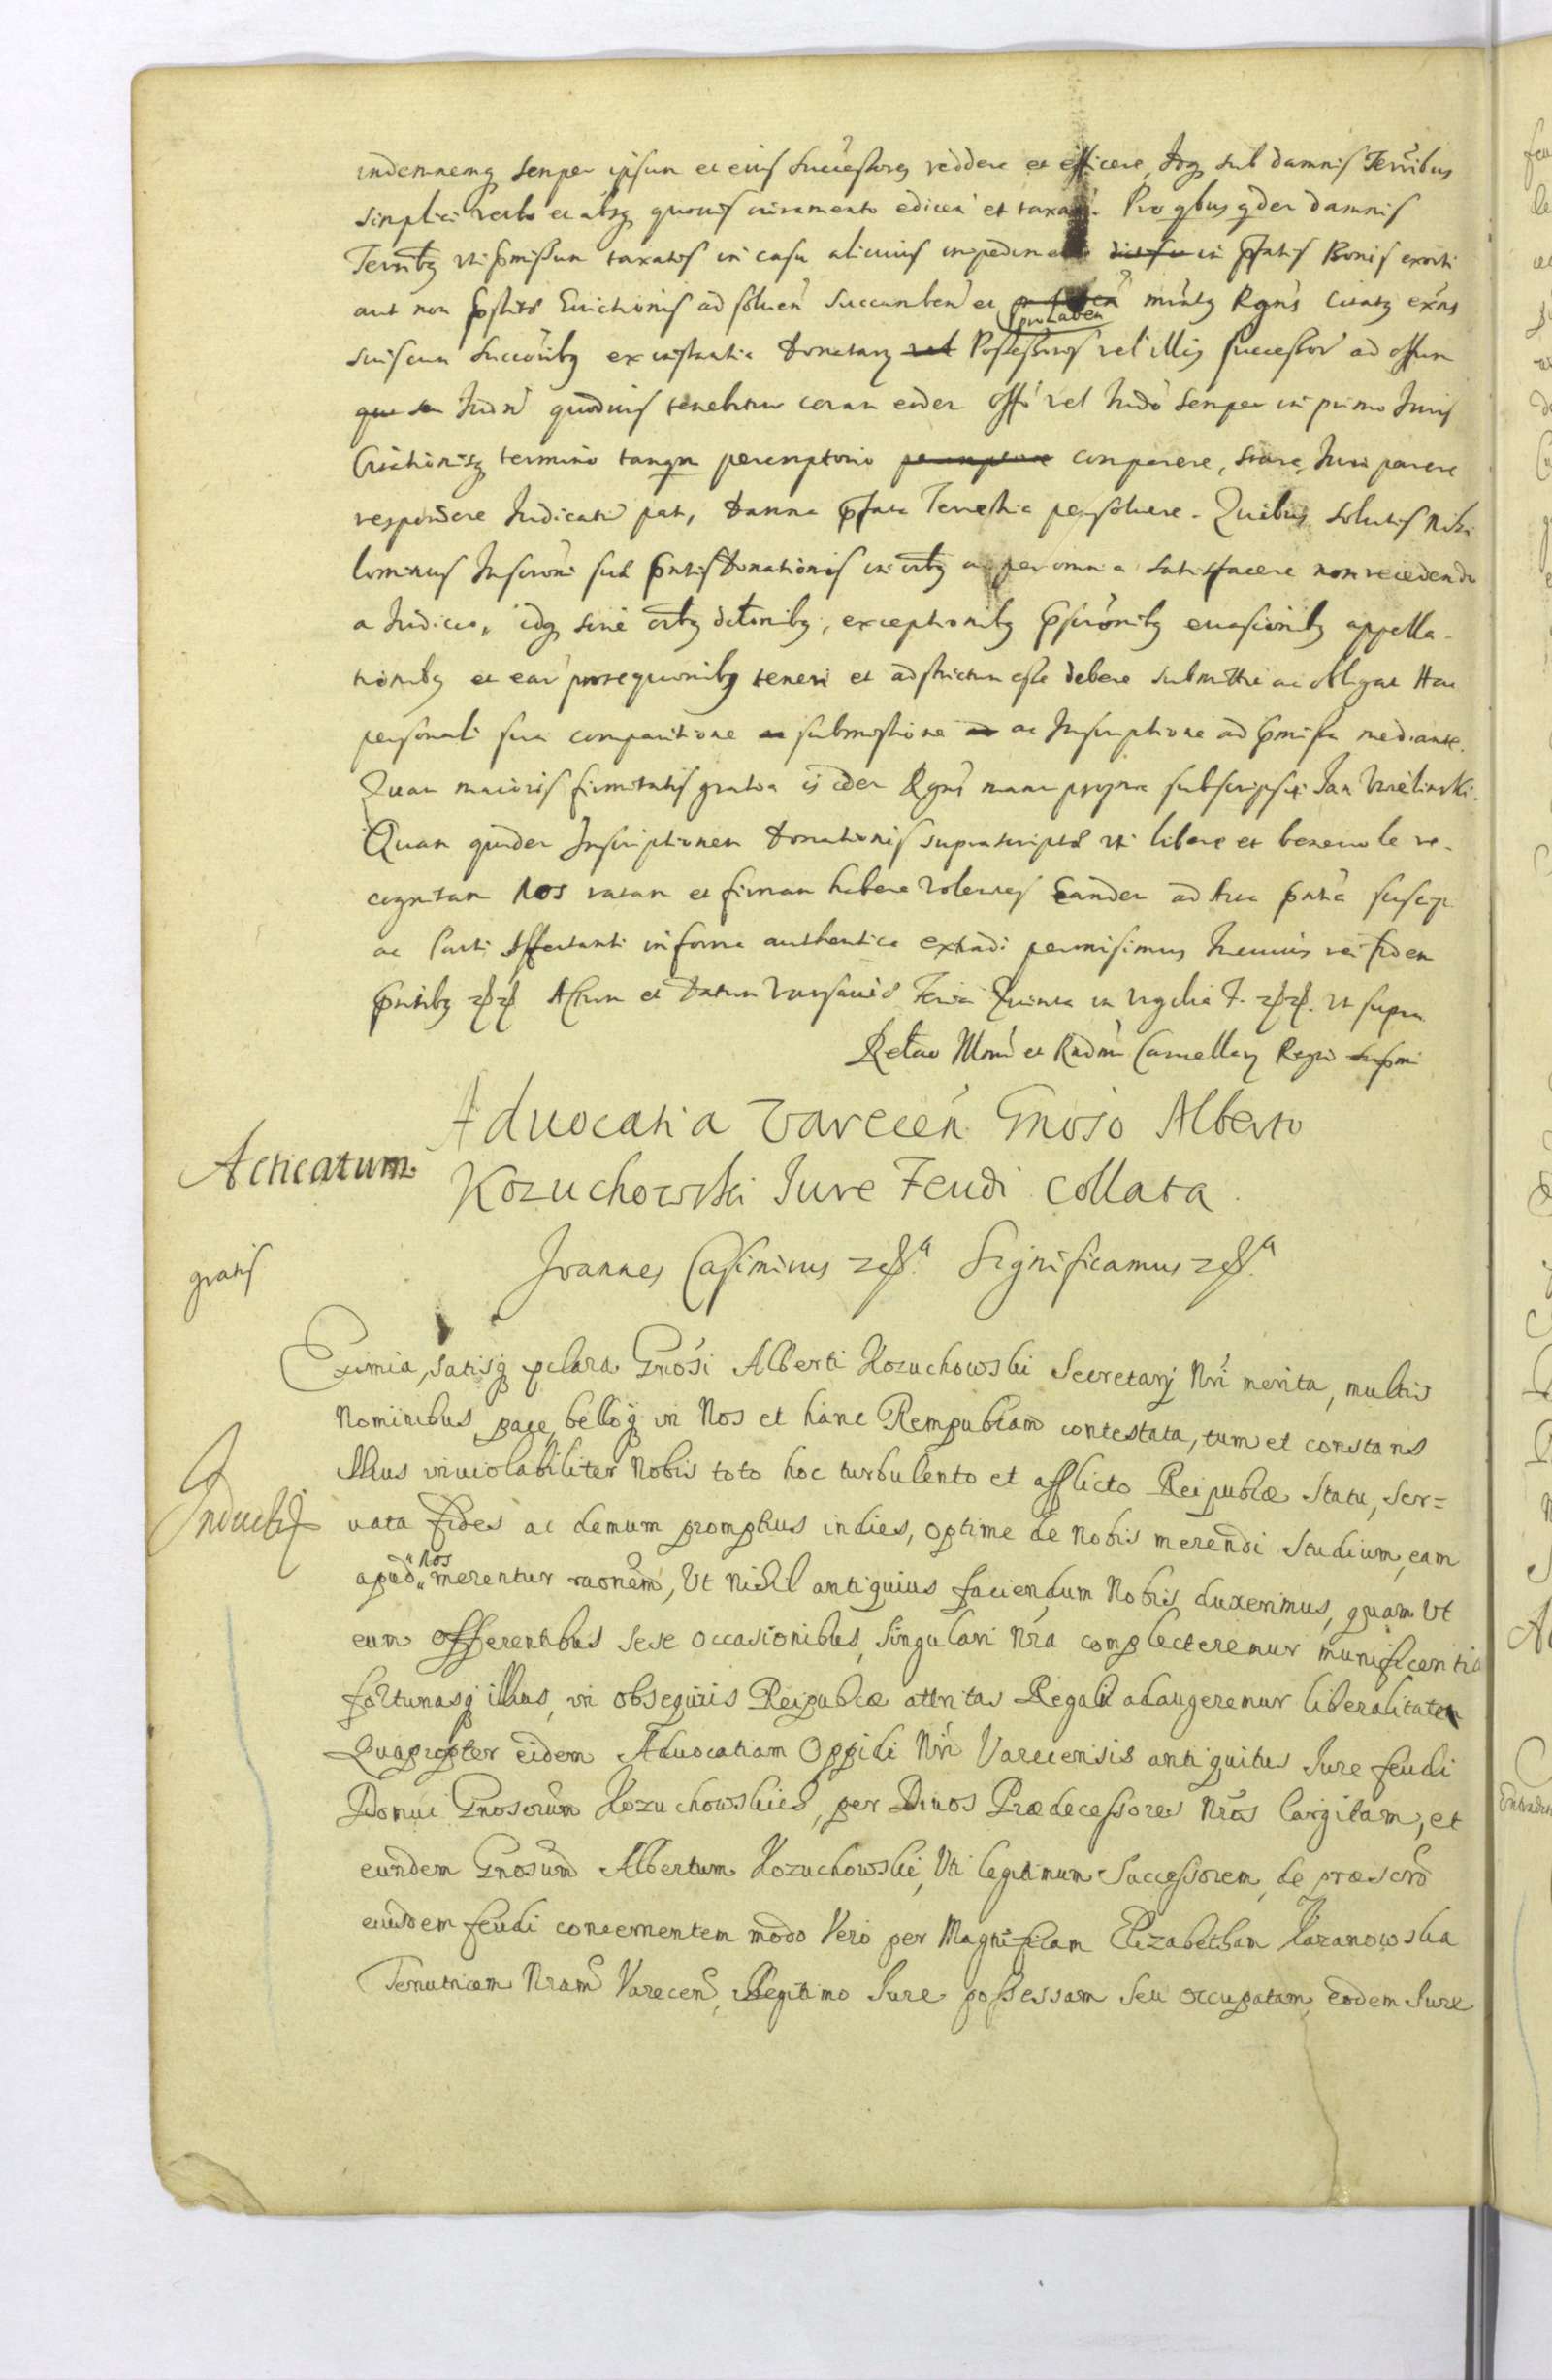 indemnemq semper ipsum et eius successores reddere et efficere, Idq sub damnis Terribus
simplici verbo et absq quouis iuramento edicen et taxan. Pro qbus qdem damnis
Terribq vti pmissum taxatis in casu alicuius impedimenti in pfatis Bonis exorti
aut non pstitae Euictionis ad soluen succumben et prolaben mintq Rgns Citatq exns
suis cum succoribq ex instantia Donatarij Possessoris vel illiq successor ad offum
Iudm quoduis tenebitur coram eodem offo vel Iudo semper in primo Iuris
Citationisq termino tanqm peremptorio comparere, stare, Iuri parere
respondere Iudicatu pati, Damna pfata Terrestria persoluere. Quibus solutis Nihi
lominus Inscroni suae pntis Donationis in oibq ac per omnia satisfacere non recedendo
a Iudicio, idq sine oibq dilonibq, exceptionibq pscronibq euasionibq appella-
tionibq et ear prosequonibq teneri et adstrictum esse debere submittit ac obligat Hac
personali sua comparitione submissione ac Inscriptione ad pmissa mediante.
Quam maioris firmitatis gratia is idem Rgns manu propria subscripsit Jan
Quam quidem Inscriptionem Donationis suprascriptae vti libere et beneuole re-
cognitam Nos ratam et firmam habere volentes Eandem ad Acta pntia suscip
ac Parti Affectanti in forma authentica extradi permisimus Incuius rei fidem
pntibq Actum et Datum Varsauiae Feria Quinta in Vigilia F. vt supra
Relao Illmi et Rndmi Cancellarij Regni
Aduocatia Varecen Gnoso Alberto
Kozuchowski Iure Feudi Collata
Acticatum
gratis
Joannes Casimirus Significamus
Eximia, satisq pclara Gnosi Alberti Kozuchowski Secretarij Nri merita, multis
Nominibus, pace, belloq in Nos et hanc Rempublcam contestata, tum et constans
Illius inuiolabiliter Nobis toto hoc turbulento et afflicto Reipublcae Statu, Ser=
Inducta
uata Fides ac demum promptius indies, optime de Nobis merendi Studium, eam
apud Nos merentur raonem, Vt Nihil antiquius faciendum Nobis duxerimus, quam Vt
eum offerentibus sese occasionibus, Singulari Nra complecteremur munificentia
fortunasq illius, in obsequiis Reipublcae attritas Regali adaugeremur liberalitate
Quapropter eidem Aduocatiam Oppidi Nri Varecensis antiquitus Iure feudi
Domui Gnosorum Kozuchowskich, per Diuos Praedecessores Nros largitam, et
eundem Gnosum Albertum Kozuchowski, Vti legitimum Successorem, de praescro
eiusdem feudi concernentem modo Vero per Magnificam Elizabetham Kazanowska
Tenutricem Nram Varecen, illegitimo Iure possessam seu occupatam, eodem Iure